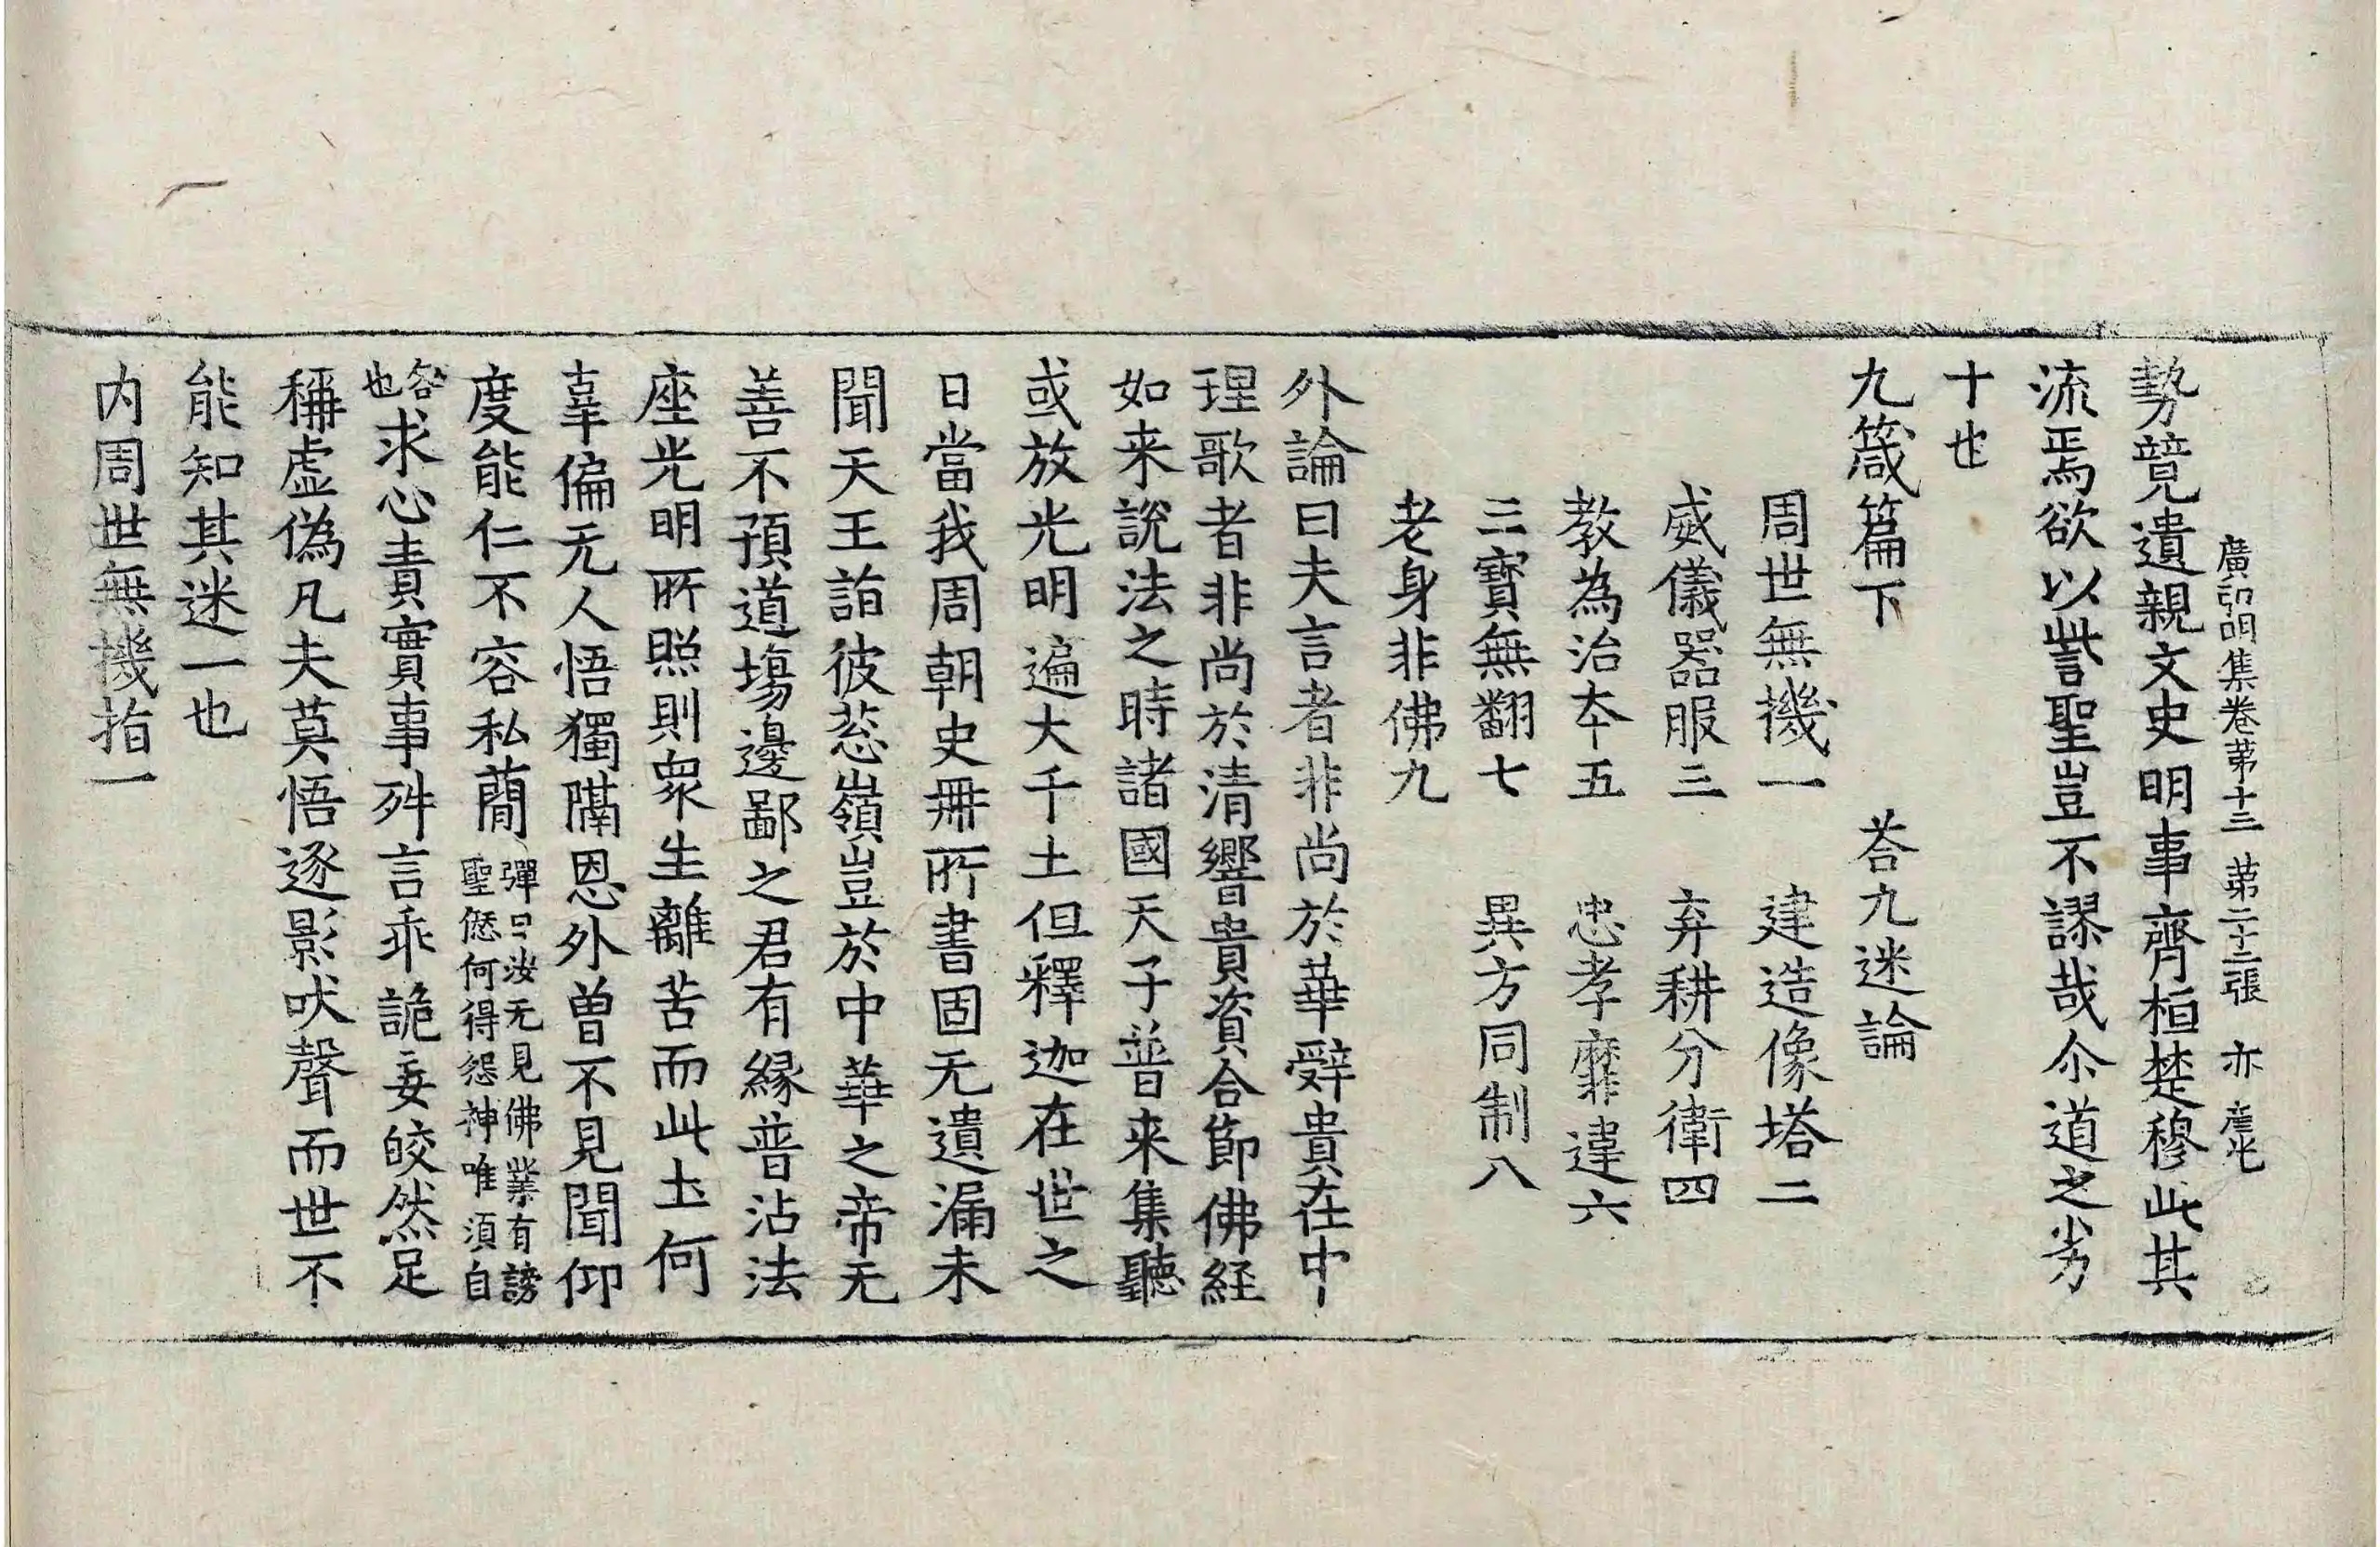 廣弘明集卷苐十三 苐二十三張 亦
勢競遺親文史明事齊桓楚穆此其
流焉欲以訾聖豈不謬哉尒道之劣
十也
九箴篇下 荅九迷論
周世無機一 建造像塔二
威儀器服三 弃耕分衛四
教為治夲五 忠孝靡違六
三寶無翻七 異方同制八
老身非佛九
外論曰夫言者非尚於華辤貴在中
理歌者非尚於清響貴資合節佛経
如来說法之時諸國天子普来集聽
或放光明遍大千土但釋迦在世之
日當我周朝史冊所書固无遺漏未
聞天王詣彼葱嶺豈於中華之帝无
善不預道場邊鄙之君有緣普沾法
座光明所照則衆生離苦而此圡何
辜偏无人悟獨隔恩外曾不見聞仰
度能仁不容私蕳 彈曰汝无見佛業有謗
聖愆何得怨神唯須自
咎也求心責實事舛言乖詭妄皎然足
稱虛偽凡夫莫悟逐影吠聲而世不
能知其迷一也
内周世無機指一